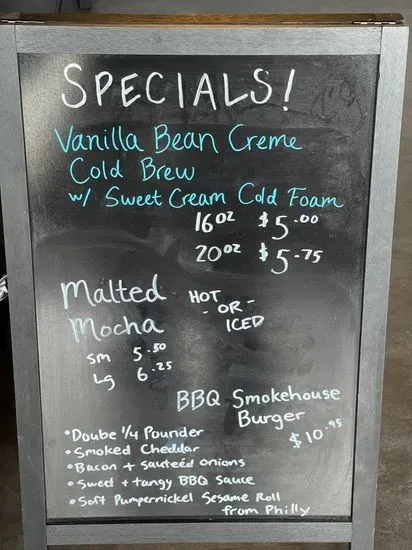 SPECIALS!
Vanilla Bean Creme
Cold Brew
w/ Sweet Cream Cold Foam
16oz $5.00
20oz $5.75
Malted HOT
Mocha - OR -
ICED
sm 5.50
Lg 6.25
BBQ Smokehouse
Burger
$10.95
• Doube 1/4 Pounder
• Smoked Cheddar
• Bacon + sauteéd onions
• Sweet + tangy BBQ Sauce
• Soft Pumpernickel Sesame Roll
from Philly